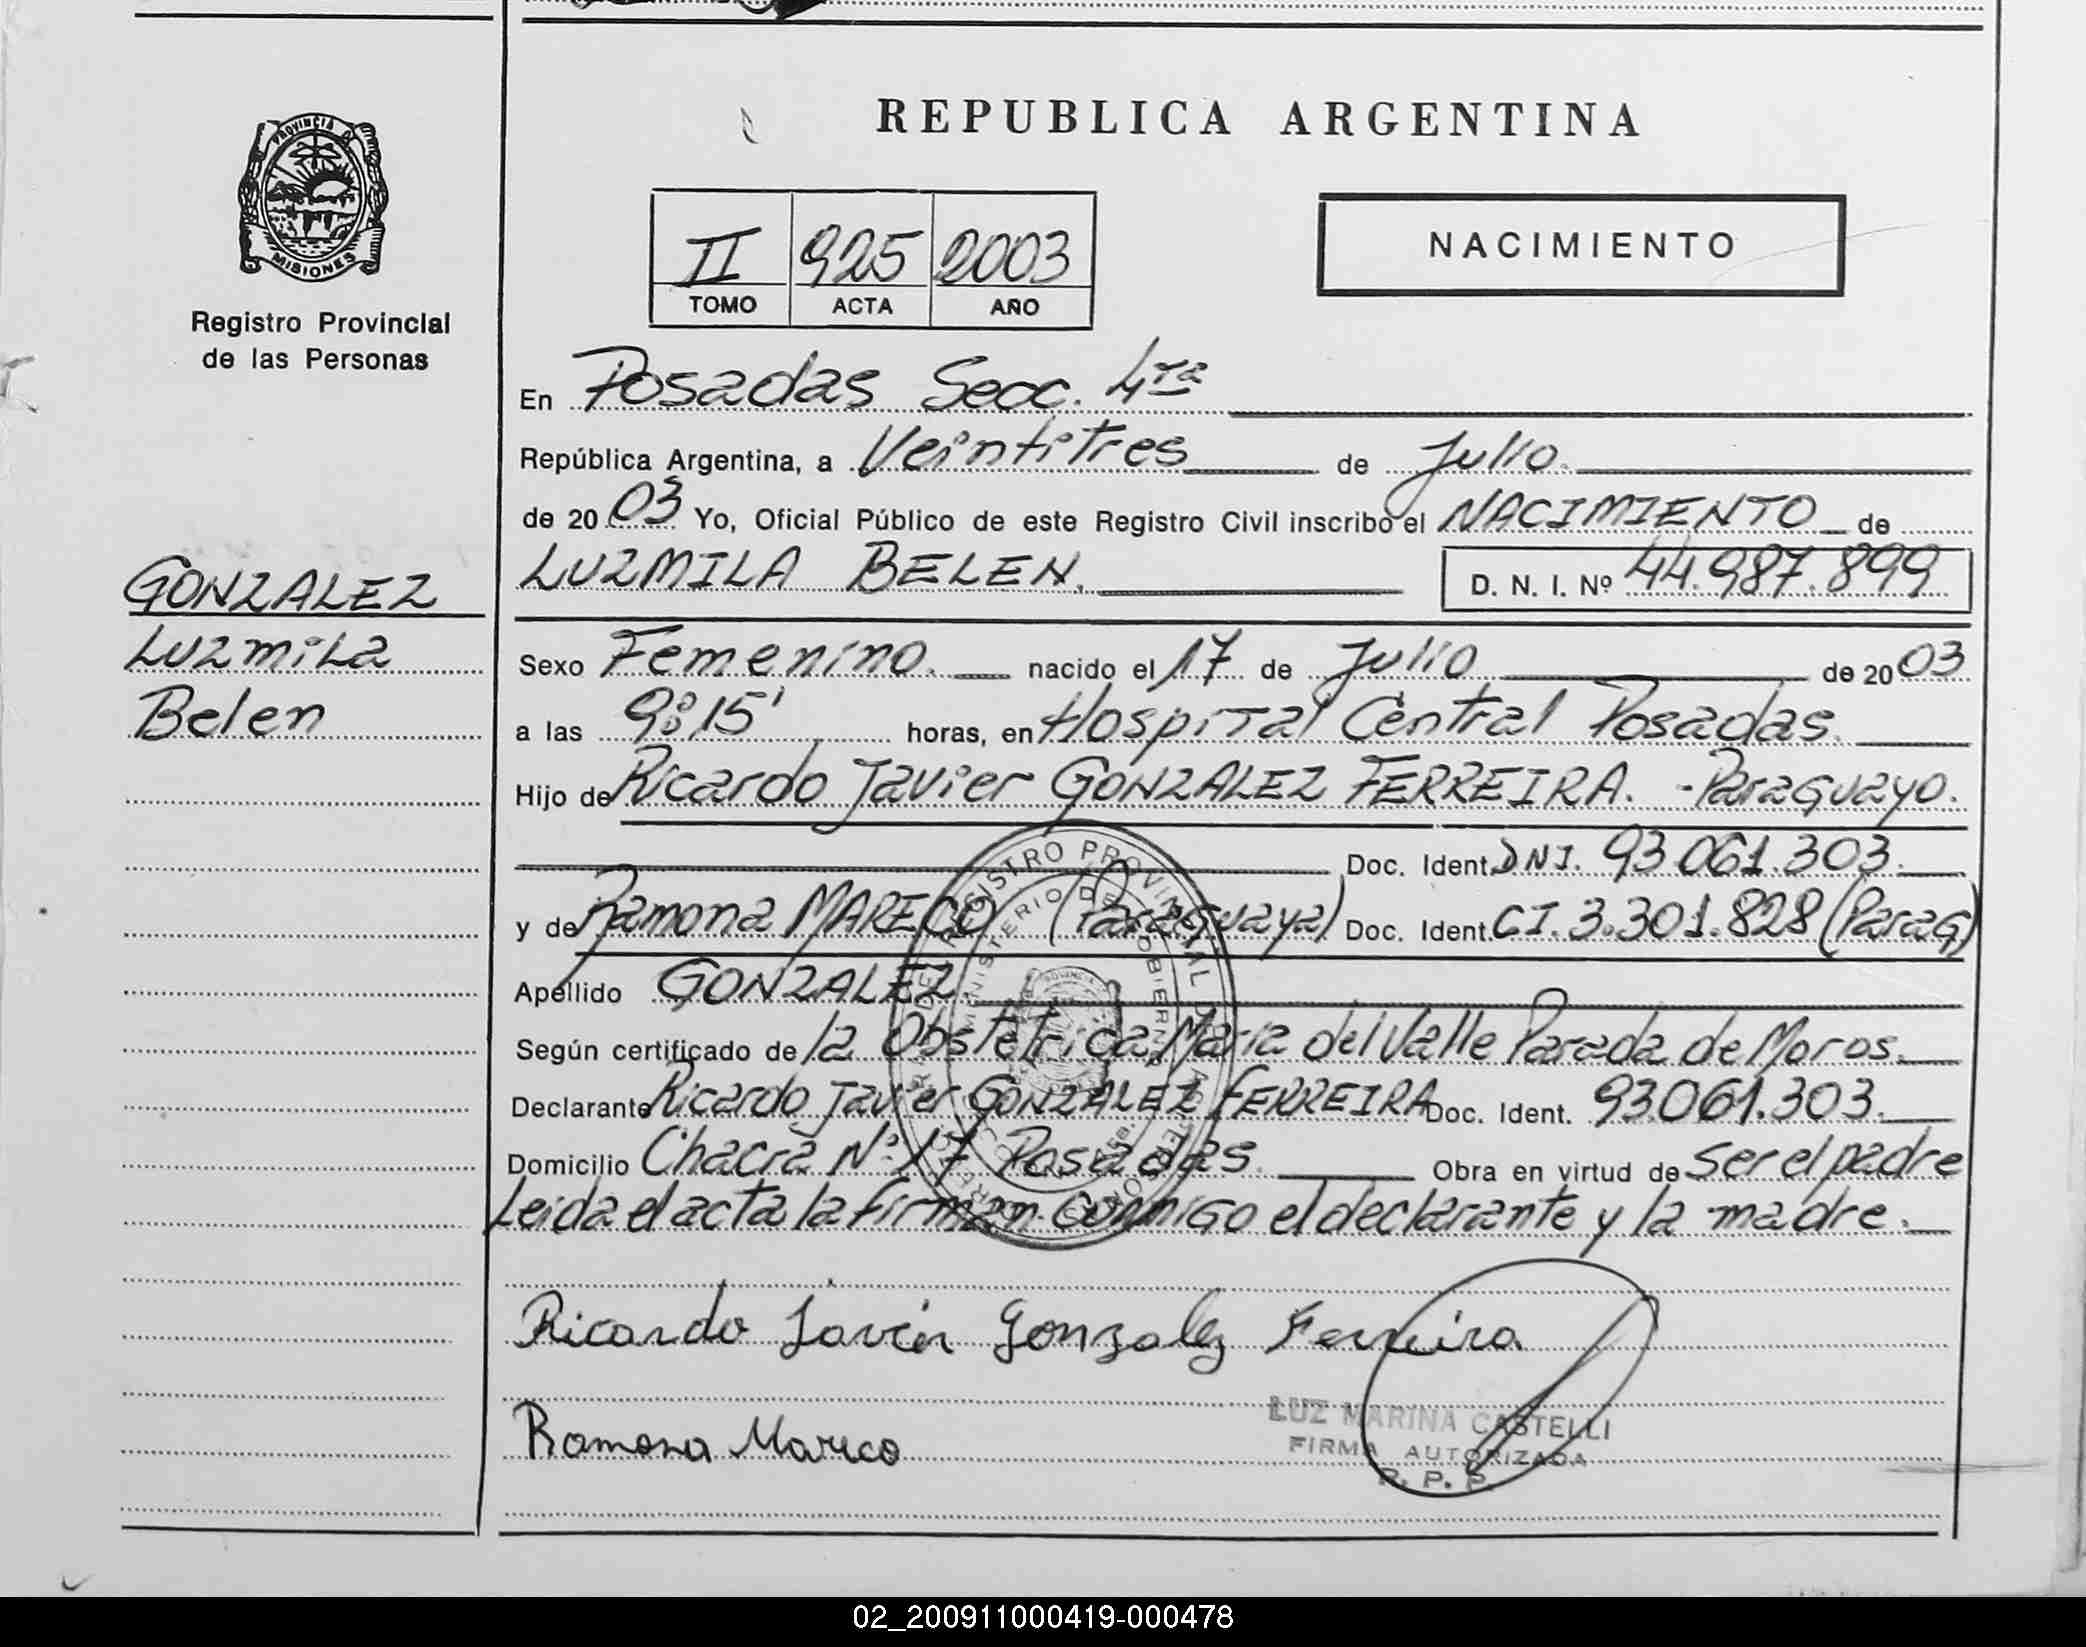 REPUBLICA ARGENTINA
PROVINCIA D
MISIONES
Registro Provincial
de las Personas
II 925 2003
TOMO ACTA AÑO
NACIMIENTO
En Posadas Secc. 4ta
República Argentina, a Veintitres de Julio.
de 2003 Yo, Oficial Público de este Registro Civil inscribo el NACIMIENTO de
LUZMILA BELEN. D. N. I. Nº 44.987.899
GONZALEZ
Luzmila
Belen
Sexo Femenino. nacido el 17 de Julio de 2003
a las 9:15' horas, en Hospital Central Posadas.
Hijo de Ricardo Javier GONZALEZ FERREIRA. - Paraguayo.
Doc. Ident. DNI. 93.061.303.
y de Ramona MARECO (Paraguaya) Doc. Ident. CI. 3.301.828 (Parag)
Apellido GONZALEZ.
Según certificado de la Obstetrica Maria del Valle Parada de Moros.
Declarante Ricardo Javier GONZALEZ FERREIRA Doc. Ident. 93.061.303.
Domicilio Chacra Nº 17 Posadas. Obra en virtud de ser el padre
Leida el acta la firman conmigo el declarante y la madre.
Ricardo Javier Gonzalez Ferreira
Ramona Mareco
LUZ MARINA CASTELLI
FIRMA AUTORIZADA
R. P. P.
02_200911000419-000478